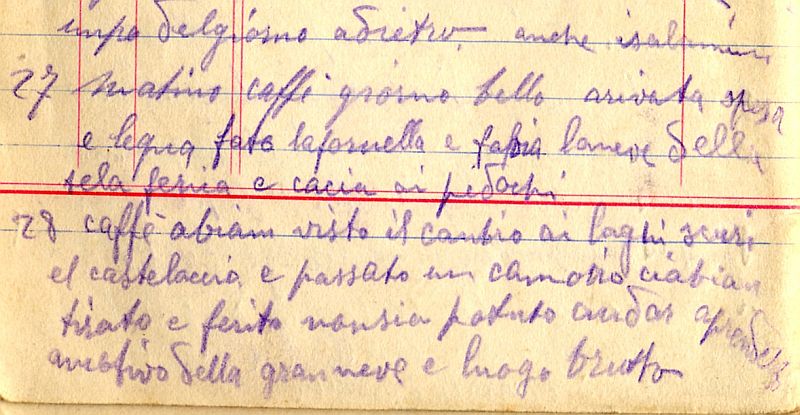 delgiorno adietro anche
27 matino caffè giorno bello arivata spesa
e legna fato lafornella e laneve della
tela ferica e cacia ai pedochi
28 caffè abiam visto il canbio ai laghi scuri
el castelaccio e passato un camoscio ciabiam
tirato e ferito nonsia potuto andar aprenderlo
amotivo della granneve e luogo bruto